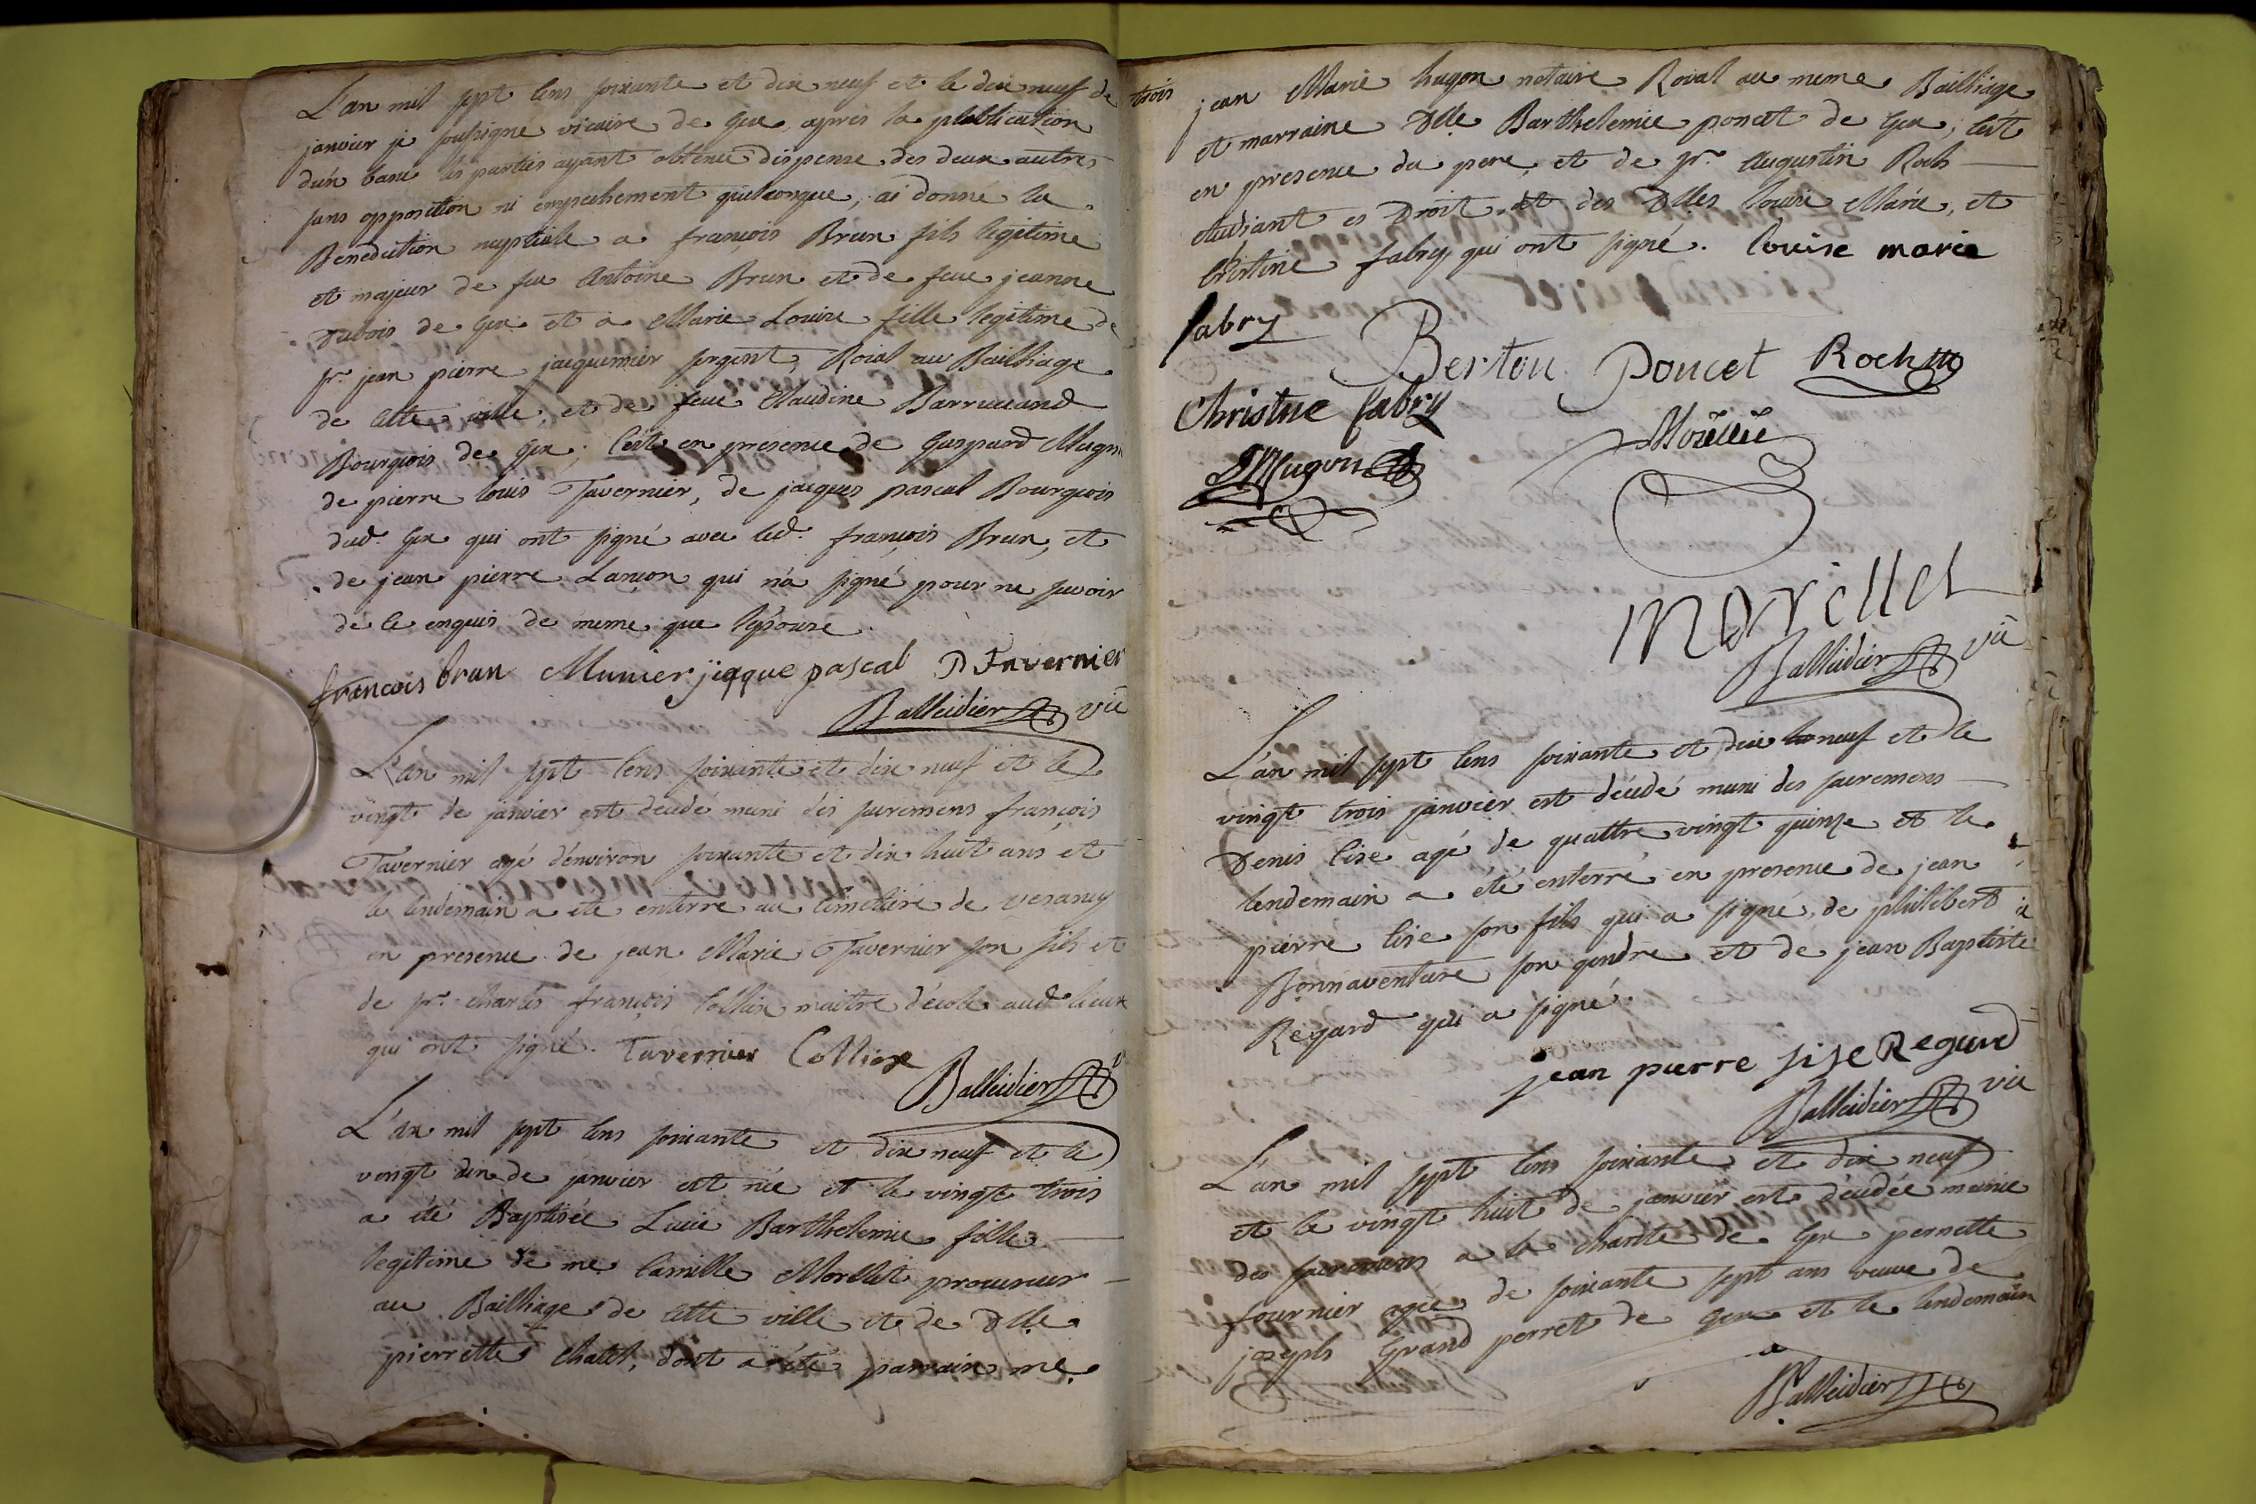 L'an mil sept cens soixante et dix neuf et le dix neuf de
janvier je soussigné vicaire de Gex, apres la publication
d'un banc les parties ayant obtenu dispense des deux autres
sans opposition ni empechement quelconque, ai donné la
Benediction nuptiale a françois Brun fils legitime
et majeur de feu Antoine Brun et de feue jeanne
Dubois de Gex et a Marie Louise fille legitime de
sr. jean pierre jacquemier sergent Roial au Bailliage
de cette ville, et de feue Claudine Barrucand
Bourgeois de Gex; c'est en presence de Gaspard Mugni
de pierre louis Tavernier, de jacques pascal Bourgeois
dud. Gex qui ont signé avec led. françois Brun, et
de jean pierre Lançon qui n'a signé pour ne savoir
de ce enquis de meme que l'epouse.
francois brun Munier jacque pascal P Tavernier
Balleidier vic
L'an mil sept cens soixante et dix neuf et le
vingt de janvier est decedé muni des sacremens françois
Tavernier agé d'environ soixante et dix huit ans et
le lendemain a été enterré au cimetiere de
en presence de jean Marie Tavernier son fils et
de sr. charles françois Collin maitre d'école aud. lieux
qui ont signé. Tavernier
Balleidier
L'an mil sept cens soixante et dix neuf et le
vingt deux de janvier est née et le vingt trois
a été Baptisée Lucie Barthelemie fille
legitime de me. Camille Morellet procureur
au Bailliage de cette ville et de Dlle
pierrette Chatel, dont a été parrain me.
trois
jean Marie hugon notaire Roial au meme Bailliage
et marraine Dlle Barthelemie poncet de Gex, c'est
en presence du pere, et de sr. Augustin Roch
etudiant es Droit et des Dlles louise Marie, et
Christine fabry, qui ont signé. louise marie
fabry Bertou Poncet Roch
Christine fabry
Hugon
Morellet
Balleidier vic
L'an mil sept cens soixante et dix neuf et le
vingt trois janvier est décédé muni des sacremens
Denis lise agé de quattre vingt quinze et le
lendemain a été enterré en presence de jean
pierre lise son fils qui a signé, de philibert
Bonnaventure son gendre et de jean Baptiste
Regard qui a signé.
jean pierre lise Regard
Balleidier vic
L'an mil sept cens soixante et dix neuf
et le vingt huit de janvier est décédée munie
des sacremens a la charité de Gex pernette
fournier agée de soixante sept ans veuve de
joseph Grand perret de Gex et le lendemain
a
Balleidier